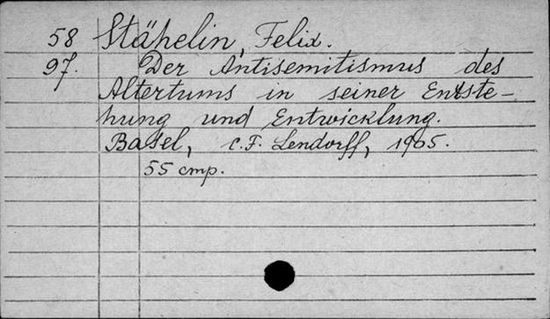 58 Stähelin, Felix.
97. Der Antisemitismus des
Altertums in seiner Entste-
hung und Entwicklung.
Basel, C.F. Lendorff, 1905.
55 стр.